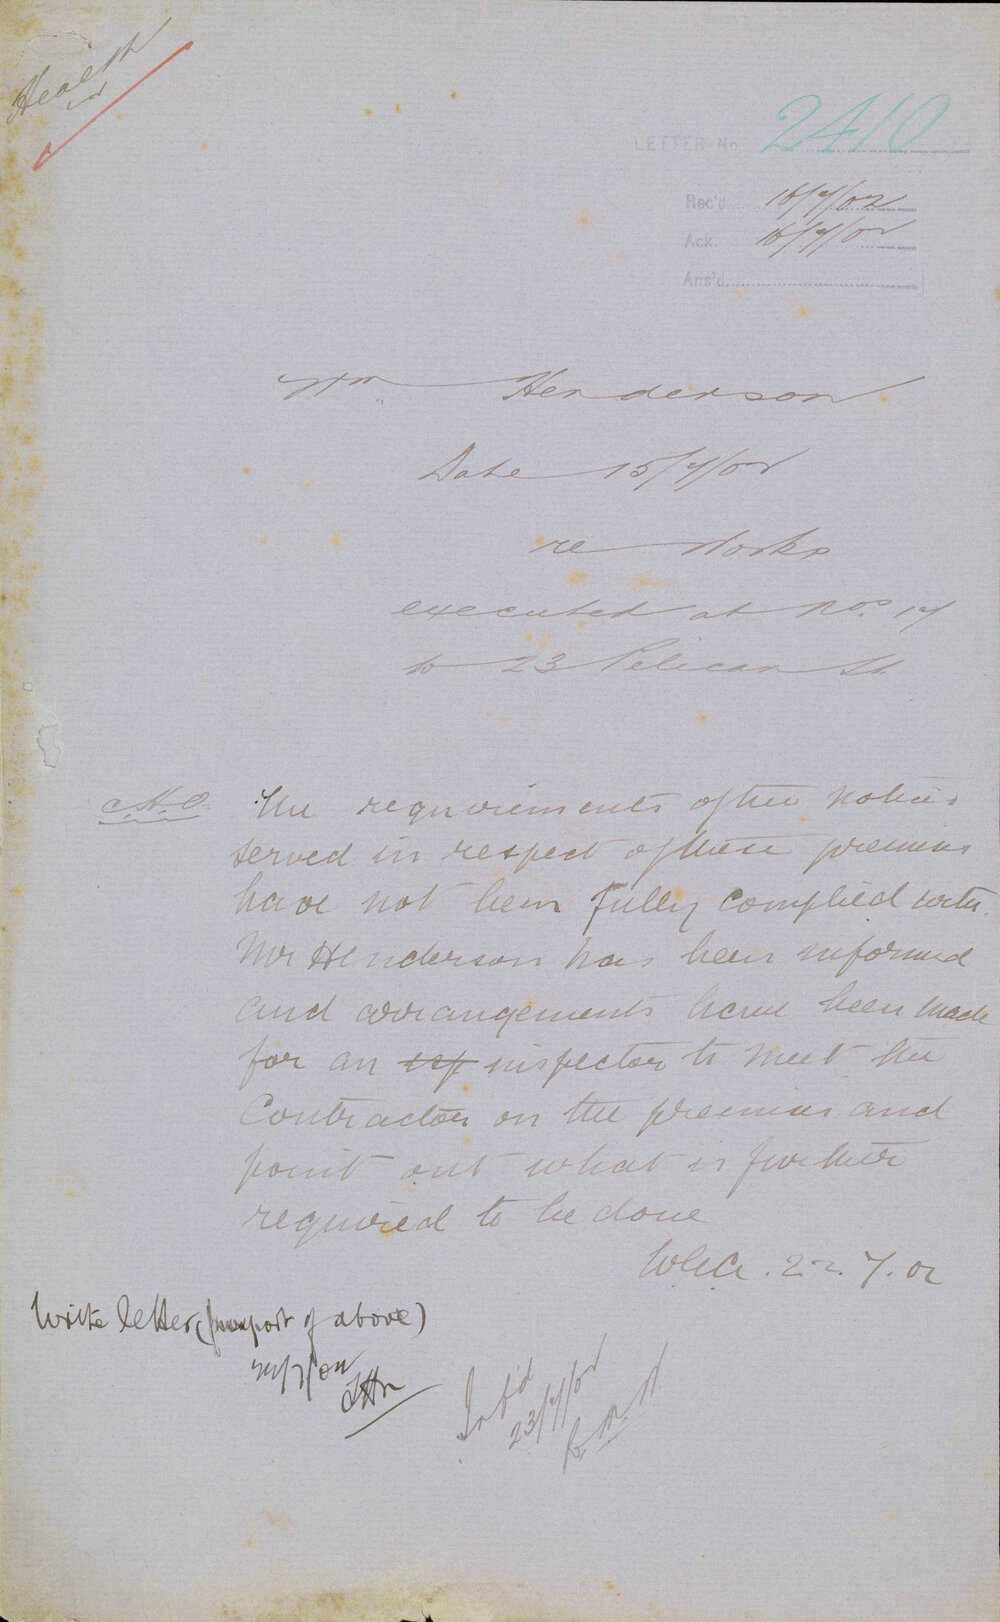 Health
LETTER No. 2410
Rec'd 16/7/02
Ack. 16/7/02
Ans'd
Wm Henderson
Date 15/7/02
re Works
executed at nos. 17
to 23 Pelican St.
C.H.O. The requirements of the notices
served in respect of these premises
have not been fully complied with.
Mr Henderson has been informed
and arrangements have been made
for an inspector to meet the
Contractor on the premises and
point out what is further
required to be done
22.7.02
Write letter (purport of above)
Inf'd
23/7/02